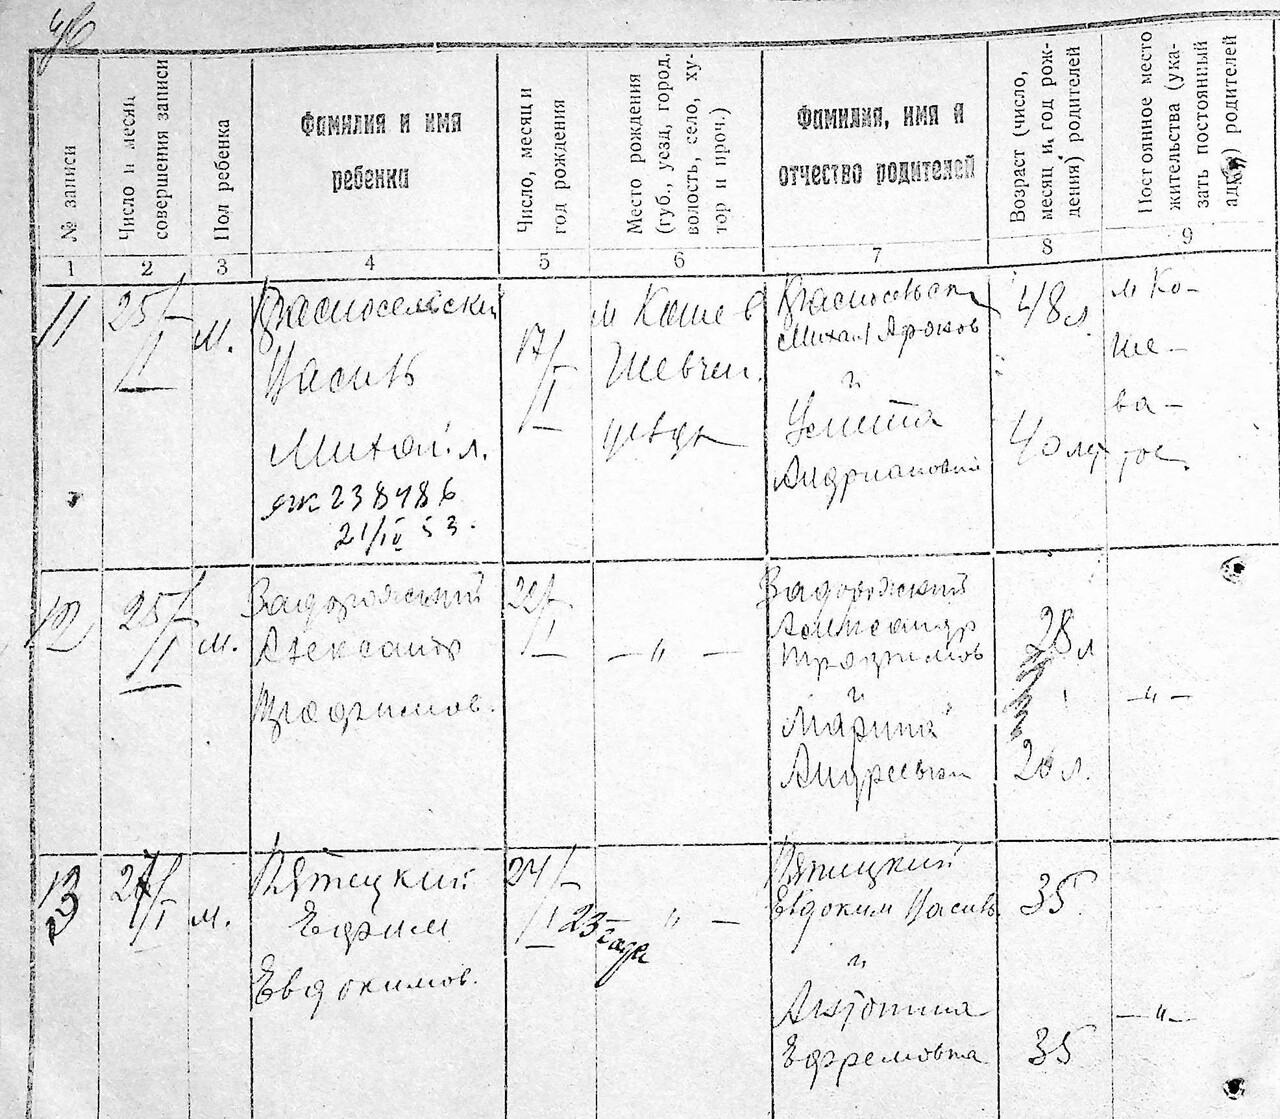 46
№ записи
Число и месяц
совершения записи
Пол ребенка
Фамилия и имя
ребенка
Число, месяц и
год рождения
Место рождения
(губ., уезд, город,
волость, село, ху-
тор и проч.)
Фамилия, имя и
отчество родителей
Возраст (число,
месяц и год рож-
дения) родителей
Постоянное место
жительства (ука-
зать постоянный
адрес) родителей
1 2 3 4 5 6 7 8 9
11
25/I
м.
Красносельский
Василь
Михайл.
238486
21/IV 53.
17/I
м Кошев
Шевчен.
уезда
Михаил
и
Андриановна
48 л.
40 лет
м Ко-
ше-
ва-
тое
12
25/I
м.
Задорожский
Александр
Трофимов.
22/I
— „ —
Задорожский
Александр
Трофимов
и
Марина
Андреевна
28 л
л.
— „ —
13
м.
Пятецкий
Ефрим
Евдокимов.
24/I 23 года
„ —
Пятицкий
Евдоким Васив
и
Антонина
Ефремовна
35
35
— „ —